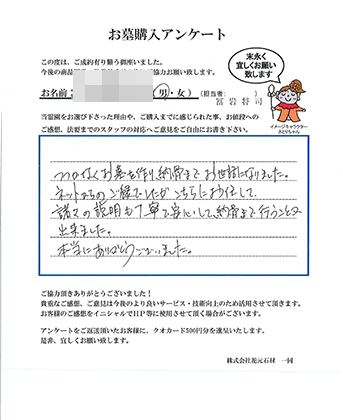 お墓購入アンケート
この度は、ご成約有り難う御座いました。
今後の商品開
協力お願い致します。
末永く
宜しくお願い
致します
お名前:
(男・女)
(担当者:
冨岩 将司
)
イメージキャラクター
さとりちゃん
当霊園をお選び下さった理由や、ご購入までに感じられた事、お値段への
ご感想、法要までのスタッフの対応へご意見をご自由にお書き下さい。
なくお墓を作り納骨までお世話になりました。
ネットからのご縁でしたがこちらにお任せして、
諸々の説明も丁寧で安心して納骨まで行うことが
出来ました。
本当にありがとうございました。
ご協力頂きありがとうございました！
貴重なご感想、ご意見は今後のより良いサービス・技術向上のため活用させて頂きます。
お客様のご感想をイニシャルでHP等に使用させて頂く場合がございます。
アンケートをご返送頂いたお客様に、クオカード500円分を進呈いたします。
是非、宜しくお願い致します。
株式会社花元石材 一同